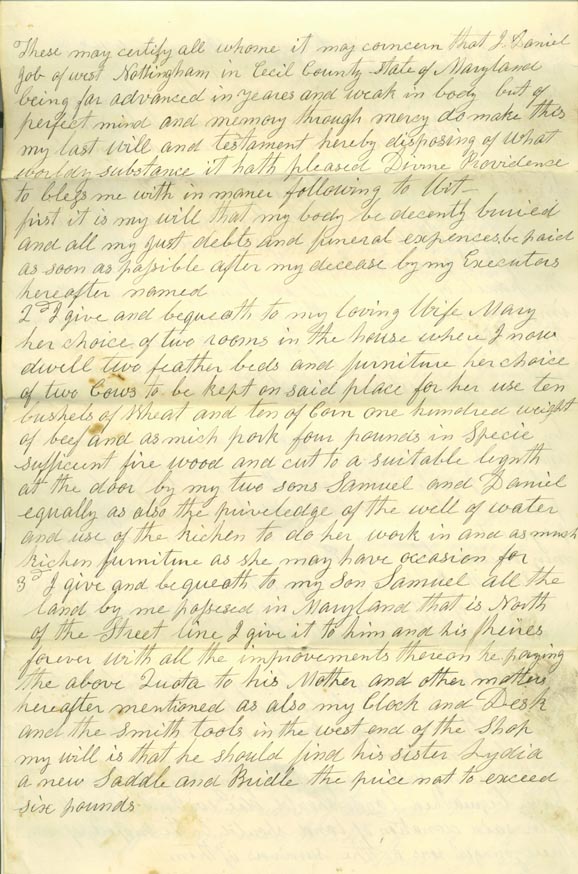 These may certify all whome it may concern that I. Daniel
Job of west Nottingham in Cecil County State of Maryland
being far advanced in yeares and weak in body but of
perfect mind and memory through mercy do make this
my last will and testament hereby disposing of what
worldy substance it hath pleased Divine Providence
to bless me with in maner following to Wit—
first it is my will that my body be decently buried
and all my just debts and funeral expences be paid
as soon as possible after my decease by my Executors
hereafter named
2d I give and bequeath to my loving Wife Mary
her choice of two rooms in the house where I now
dwell two feather beds and furniture her choice
of two Cows to be kept on said place for her use ten
bushels of Wheat and ten of Corn one hundred weight
of beef and as mich pork four pounds in Specie
sufficient fire wood and cut to a suitable length
at the door by my two sons Samuel and Daniel
equally as also the priveledge of the well of water
and use of the kichen to do her work in and as much
kichen furniture as she may have occasion for
3d I give and bequeath to my Son Samuel all the
land by me possesed in Maryland that is North
of the Street line I give it to him and his heires
forever with all the improvements thereon he paying
the above Quota to his Mother and other matters
hereafter mentioned as also my Clock and Desk
and the Smith tools in the west end of the Shop
my will is that he should find his sister Lydia
a new Saddle and Bridle the price not to exceed
six pounds